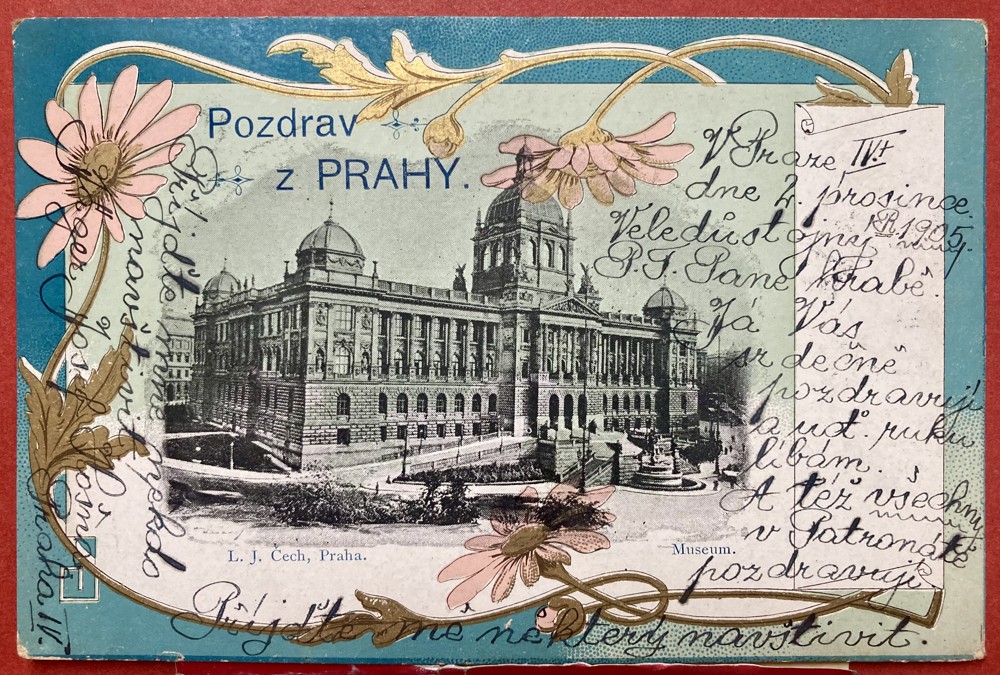 Pozdrav
z PRAHY.
V Praze IV.t
dne 2. prosince
1905.
Veledůstojný
P.T. Pane Hrabě.
Já Vás
srdečně
pozdravuji
a uct. ruku
líbám.
A též všechny
v Patronátě
pozdravuji
Přijďte mě některý navštívit.
Přijďte mne
navštívit někdo
Josef
Praha. IV.
L. J. Čech, Praha.
Museum.